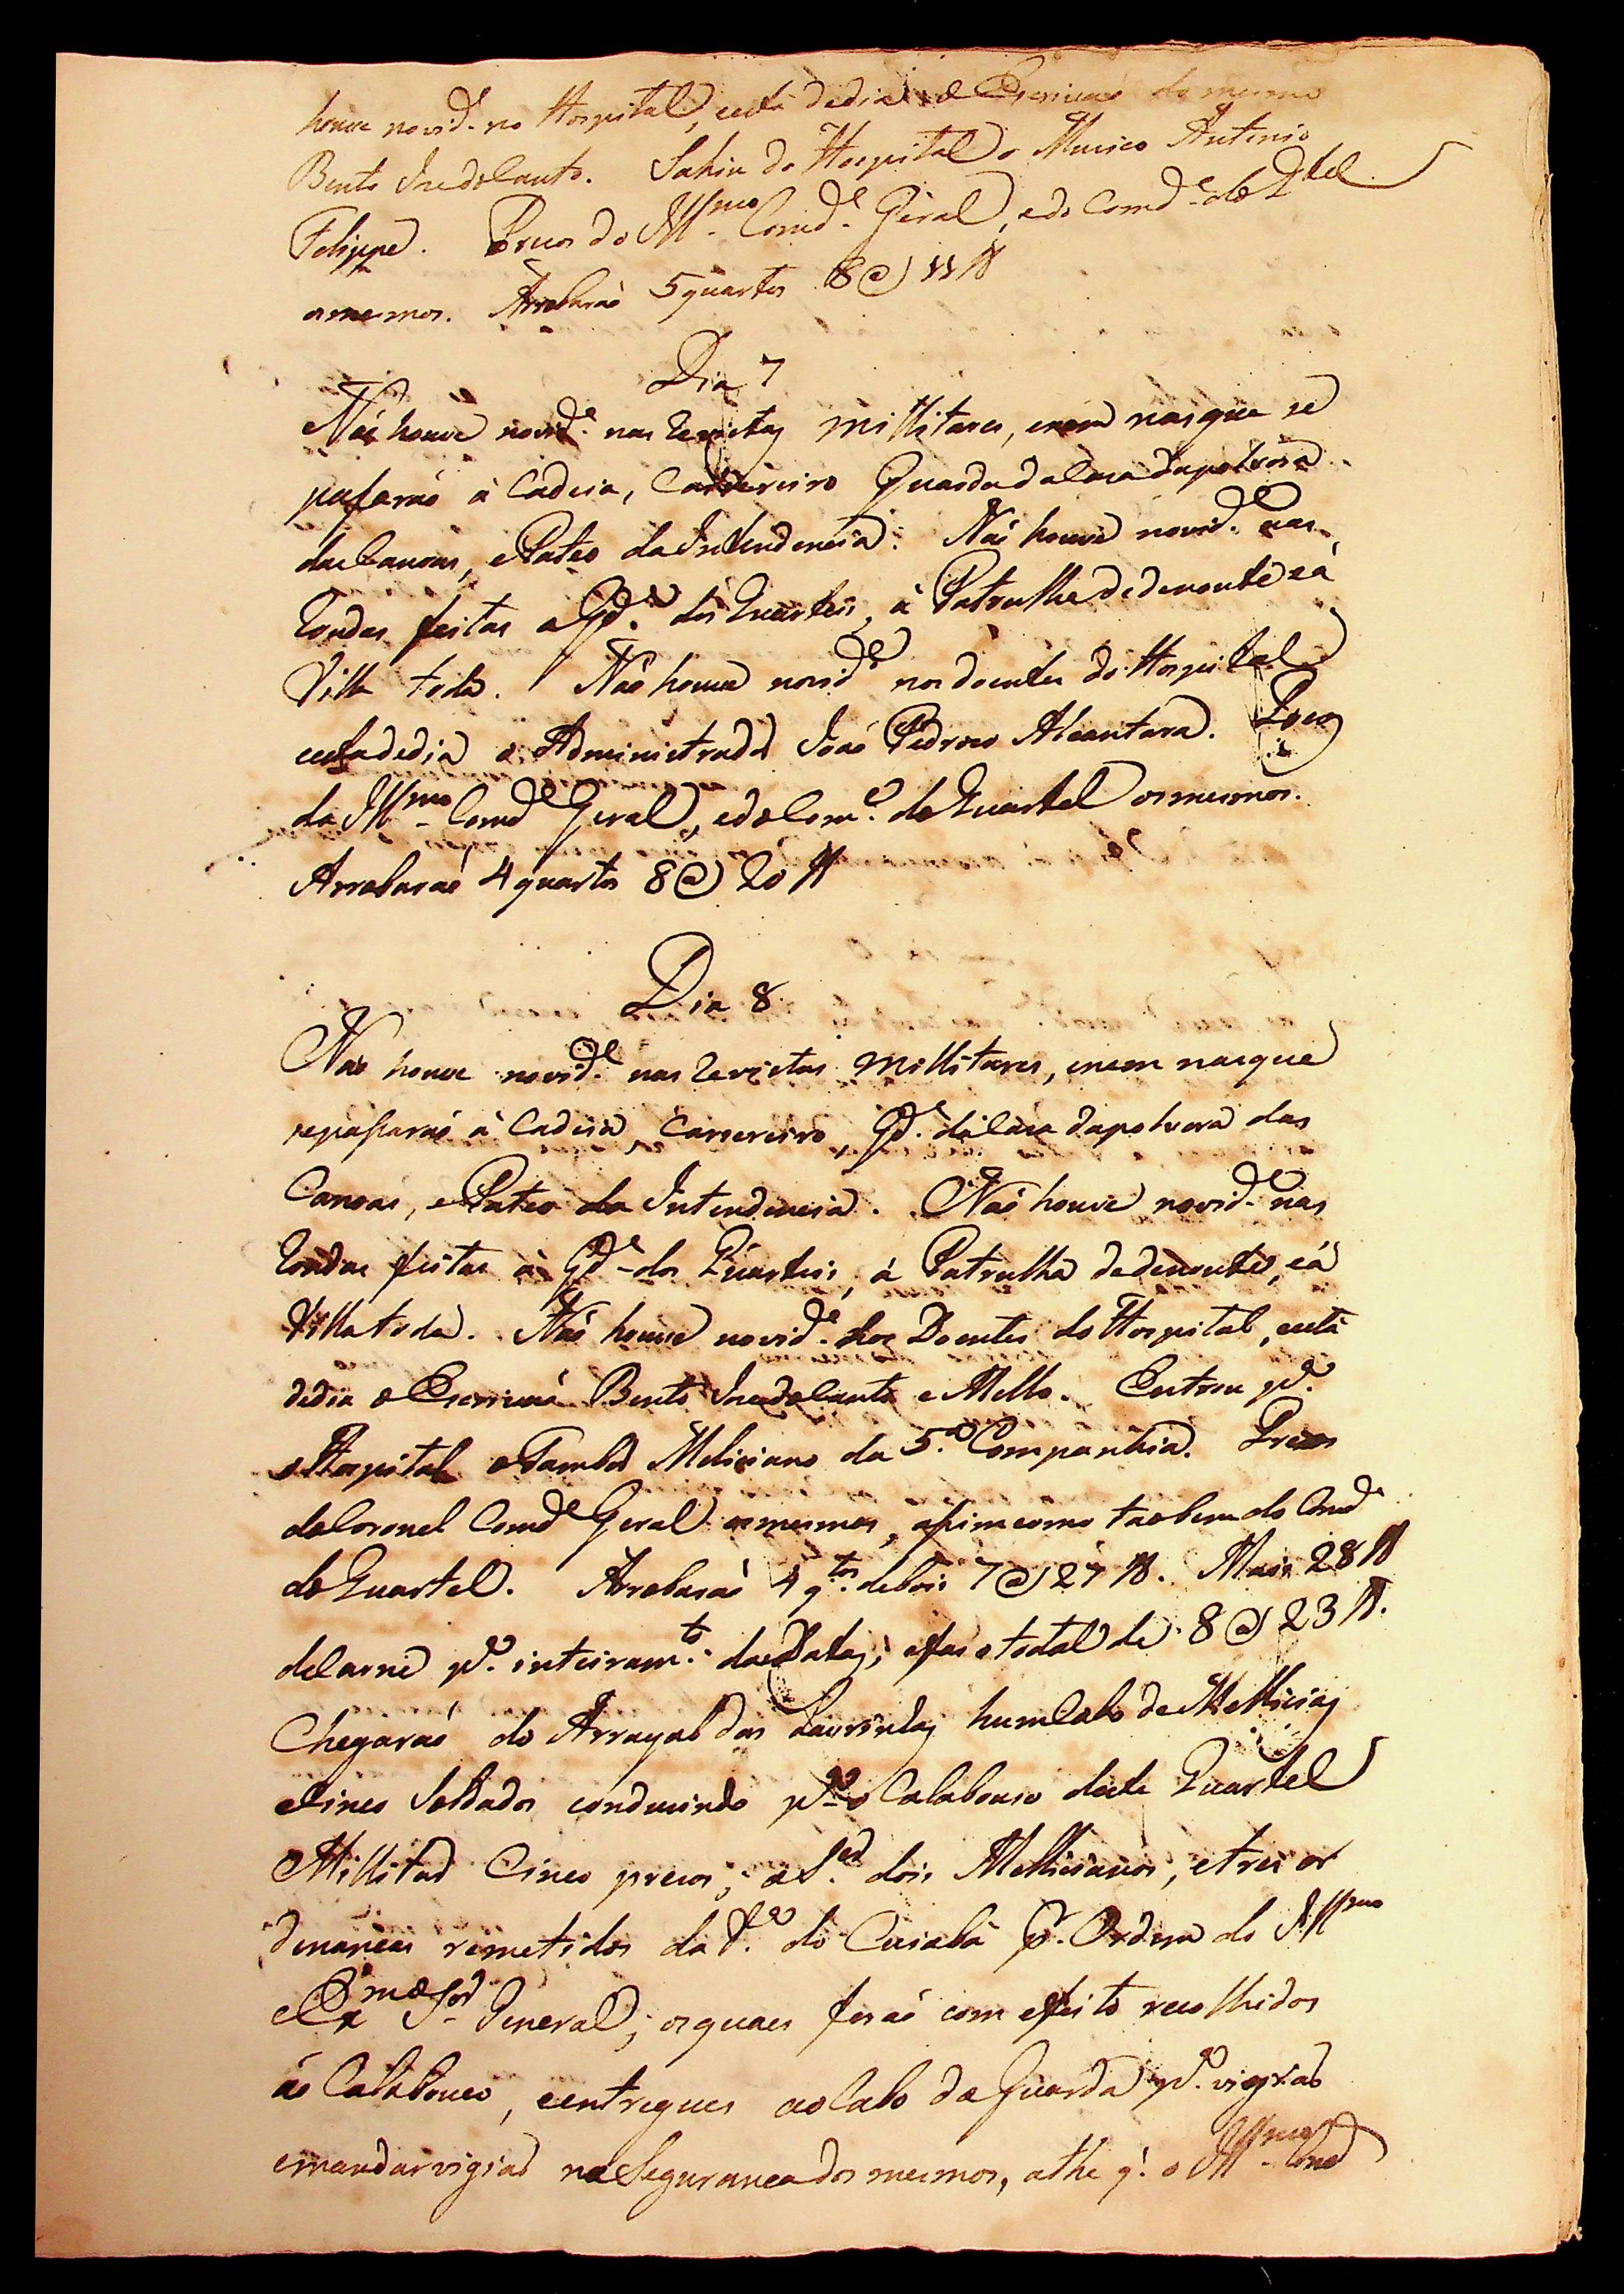 houve novid.e no Hospital, está de dia o Escrivaõ do mesmo
Bento Joze do Canto. Sahiu do Hospital o Muzico Antonio
Felippe. Prezos do Ill.mo Comd.e Geral, e do Comd.e do Q.tel
os mesmos. Arrobaraõ 5 quartos 8 @ 11 ℔
Dia 7
Naõ houve novid.e nas revistas Millitares, e nem nas que se
passaraõ à Cadeia, Carsereiro Guarda da Caza da polvora
das Canoas, e Pateo da Intendencia. Naõ houve novid.e nas
rondas feitas a G.da dos Quarteis, à Patrulha de demonte e à
Villa toda. Naõ houve novid.e nos doentes do Hospital
está de dia o Administrador Joaõ Pedrozo Alcantara. Prezos
do Ill.mo Comd.e Geral, e do Com.e do Quartel os mesmos.
Arrobaraõ 4 quartos 8 @ 20 ℔
Dia 8
Naõ houve novid.e nas revistas Millitares, e nem nas que
se passaraõ à Cadeia, Carsereiro, G.da da Caza da polvora das
Canoas, e Pateo da Intendencia. Naõ houve novid.e nas
rondas feitas à G.da dos Quarteis, á Patrulha de demonte, e á
Villa toda. Naõ houve novid.e dos Doentes do Hospital, está
de dia o Escrivaõ Bento Joze do Canto e Mello. Entrou p.a
o Hospital o Tambor Meliciano da 5.a Companhia. Prezos
do Coronel Comd.e Geral os mesmos, assim como taobem do Comd.e
do Quartel. Arrobaraõ 4 q.tos de bois 7 @ 27 ℔. Mais 28 ℔
de Carne p.a inteiram.to das Datas, e fas o total de 8 @ 23 ℔.
Chegaraõ do Arrayal das Lavrinhas hum Cabo de Mellicias
e cinco Soldados conduzindo p.a o Calabouso deste Quartel
Millitar Cinco prezos; a S.er dois Mellicianos, e tres or
denanças remetidos da V.a do Cuiabá p.r Ordem do Ill.mo
e Ex.mo Sr. General; os quaes foraõ com efeito recolhidos
áo Calabouço, e entregues ao Cabo da Guarda p.a vigiar
e mandar vigiar na Segurança dos mesmos, athe q. o Ill.mo Comd.e